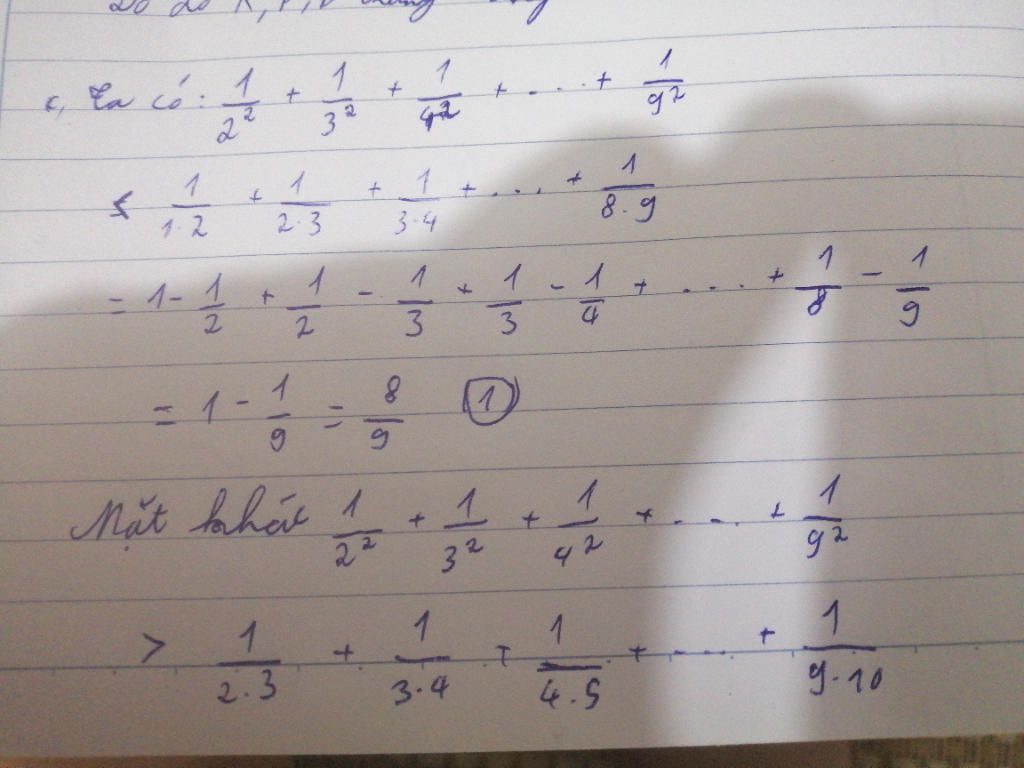 c, Ta có: 1/2² + 1/3² + 1/4² + ... + 1/9²
< 1/1·2 + 1/2·3 + 1/3·4 + ... + 1/8·9
= 1 - 1/2 + 1/2 - 1/3 + 1/3 - 1/4 + .... + 1/8 - 1/9
= 1 - 1/9 = 8/9 ①
Mặt khác 1/2² + 1/3² + 1/4² + .... + 1/9²
> 1/2·3 + 1/3·4 + 1/4·5 + .... + 1/9·10